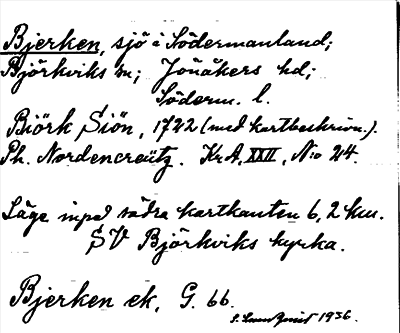 Bjerken, sjö i Södermanland;
Björkviks sn; Jönåkers hd;
Söderm. l.
Biörk Siön, 1722 (med kartbeskrivn.).
Ph. Nordencreütz. Kr.A. XXII, N:o 24.
Läge invid södra kartkanten 6,2 km.
SV Björkviks kyrka.
Bjerken ek, G. 66.
S. Lundquist 1936.